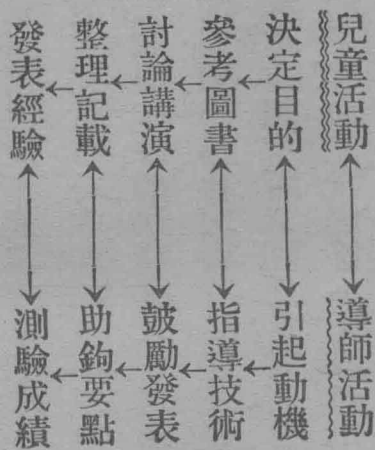 兒童活動
導師活動
決定目的
引起動機
參考圖書
指導技術
討論講演
鼓勵發表
整理記載
助鉤要點
發表經驗
測驗成績